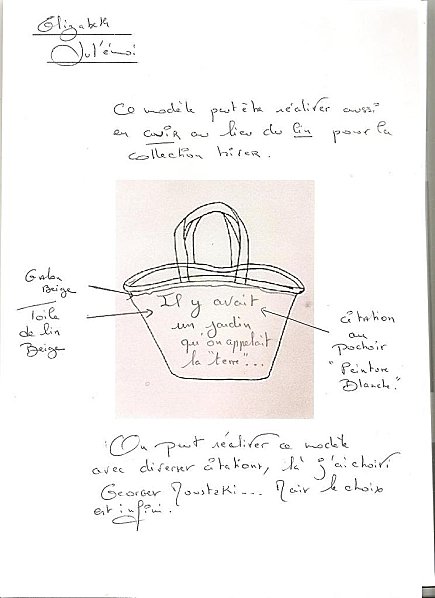 Elizabeth
Jul'émoi
Ce modèle peut être réaliser aussi
en cuir au lieu du lin pour la
collection hiver.
Galon
Beige
Toile
de lin
Beige
Il y avait
un jardin
qu'on appelait
la "terre"...
citation
au
pochoir
"Peinture
Blanche."
On peut réaliser ce modèle
avec diverses citations, là j'ai choisi
Georges Moustaki... Mais le choix
est infini.